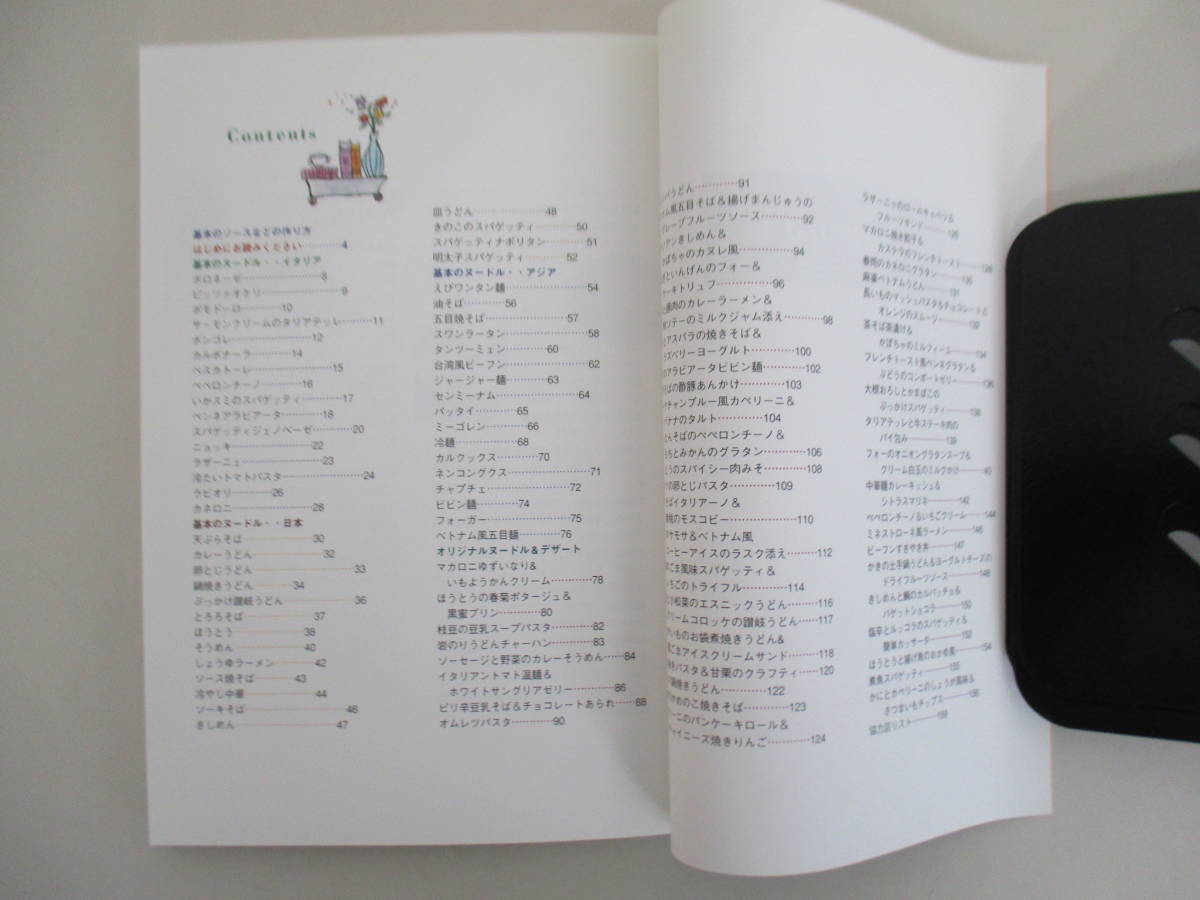 Contents
基本のソースなどの作り方
はじめにお読みください…………4
基本のヌードル・・イタリア
ボロネーゼ…………8
ピッツォケリ…………9
ポモドーロ…………10
サーモンクリームのタリアテッレ…………11
ボンゴレ…………12
カルボナーラ…………14
ペスカトーレ…………15
ペペロンチーノ…………16
いかスミのスパゲッティ…………17
ペンネアラビアータ…………18
スパゲッティジェノベーゼ…………20
ニョッキ…………22
ラザーニェ…………23
冷たいトマトパスタ…………24
ラビオリ…………26
カネロニ…………28
基本のヌードル・・日本
天ぷらそば…………30
カレーうどん…………32
卵とじうどん…………33
鍋焼きうどん…………34
ぶっかけ讃岐うどん…………36
とろろそば…………37
ほうとう…………38
そうめん…………40
しょうゆラーメン…………42
ソース焼そば…………43
冷やし中華…………44
ソーキそば…………46
きしめん…………47
皿うどん…………48
きのこのスパゲッティ…………50
スパゲッティナポリタン…………51
明太子スパゲッティ…………52
基本のヌードル・・アジア
えびワンタン麺…………54
油そば…………56
五目焼そば…………57
スワンラータン…………58
タンツーミェン…………60
台湾風ビーフン…………62
ジャージャー麺…………63
センミーナム…………64
パッタイ…………65
ミーゴレン…………66
冷麺…………68
カルクックス…………70
ネンコングクス…………71
チャプチェ…………72
ビビン麺…………74
フォーガー…………75
ベトナム風五目麺…………76
オリジナルヌードル＆デザート
マカロニゆずいなり＆
いもようかんクリーム…………78
ほうとうの春菊ポタージュ＆
黒蜜プリン…………80
枝豆の豆乳スープパスタ…………82
岩のりうどんチャーハン…………83
ソーセージと野菜のカレーそうめん……84
イタリアントマト温麺＆
ホワイトサングリアゼリー…………86
ピリ辛豆乳そば＆チョコレートあられ……88
オムレツパスタ…………90
うどん…………91
ム風五目そば＆揚げまんじゅうの
レープフルーツソース…………92
アンきしめん＆
かぼちゃのカヌレ風…………94
といんげんのフォー＆
ーキトリュフ…………96
豚肉のカレーラーメン＆
ンテーのミルクジャム添え…………98
とアスパラの焼きそば＆
ズベリーヨーグルト…………100
のアラビアータビビン麺…………102
ばの酢豚あんかけ…………103
チャンプルー風カペリーニ＆
ナナのタルト…………104
とんそばのペペロンチーノ＆
ちとみかんのグラタン…………106
とうのスパイシー肉みそ…………108
の卵とじパスタ…………109
ばイタリアーノ＆
焼のモスコビー…………110
サモサ＆ベトナム風
コーヒーアイスのラスク添え…………112
ごま風味スパゲッティ＆
ちごのトライフル…………114
小松菜のエスニックうどん…………116
リームコロッケの讃岐うどん…………117
いものお袋煮焼きうどん＆
ごまアイスクリームサンド…………118
きパスタ＆甘栗のクラフティ…………120
鍋焼きうどん…………122
かめのこ焼きそば…………123
ーニのパンケーキロール＆
ャイニーズ焼きりんご…………124
ラザーニャのロールキャベツ＆
フルーツサンド…………126
マカロニ焼き餃子＆
カステラのフレンチトースト…………128
春雨のカネロニグラタン…………130
麻婆ベトナムうどん…………131
長いものマッシュパスタ＆チョコレートと
オレンジのスムージー…………132
茶そば茶漬け＆
かぼちゃのミルフィーユ…………134
フレンチトースト風ペンネグラタン＆
ぶどうのコンポートゼリー…………136
大根おろしとかまぼこの
ぶっかけスパゲッティ…………138
タリアテッレと牛ステーキ肉の
パイ包み…………139
フォーのオニオングラタンスープ＆
クリーム白玉のミルクかけ…………40
中華麺カレーキッシュ＆
シトラスマリネ…………142
ペペロンチーノ＆いちごクリーム…………144
ミネストローネ風ラーメン…………146
ビーフンすきやき丼…………147
かきの土手鍋うどん＆ヨーグルトチーズの
ドライフルーツソース…………148
きしめんと鯛のカルパッチョ＆
バゲットショコラ…………150
塩辛とルッコラのスパゲッティ＆
簡単カッサータ…………152
ほうとうと揚げ魚のおかゆ風…………154
煮魚スパゲッティ…………155
かにとカペリーニのしょうが風味＆
さつまいもチップス…………156
協力店リスト…………159